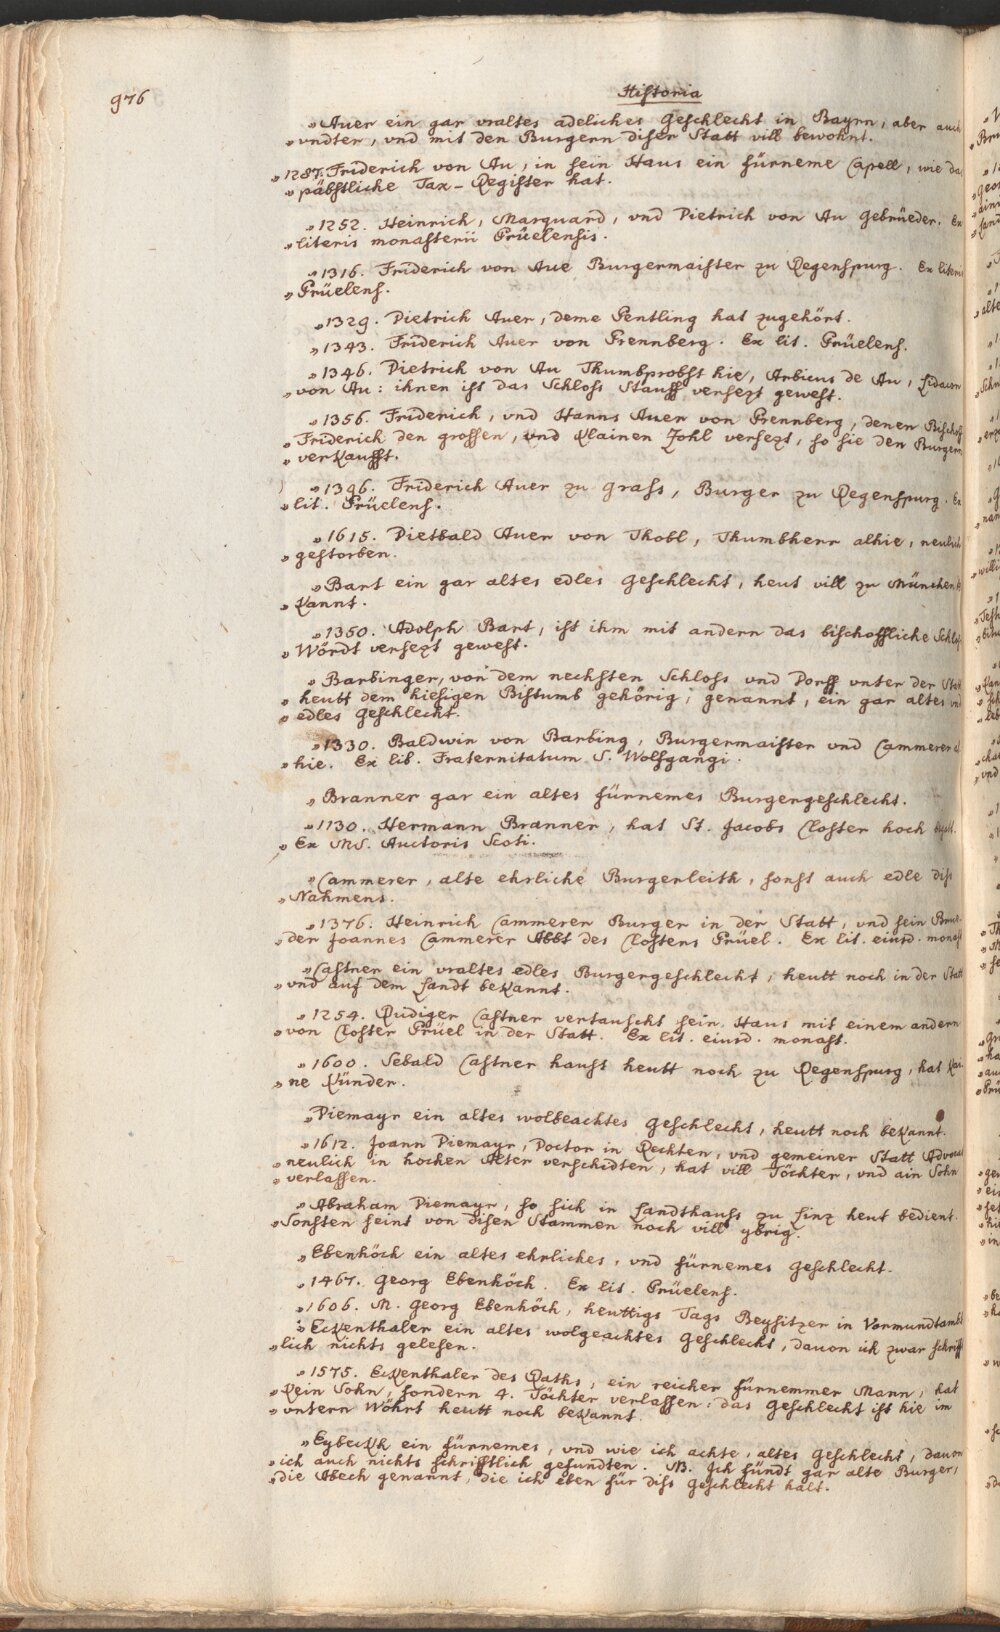 976
Historia
„Auer ein gar vraltes adeliches Geschlecht in Bayrn, aber auch
„vndter, vnd mit den Burgern diser Statt vill bewohnt.
„1287. Friderich von Au, in sein Haus ein fürneme Capell, wie das
„päbstliche Tax-Register hat.
„1252. Heinrich, Marquard, vnd Dietrich von Au Gebrüeder. Ex
„literis monasterii Prüelensis.
„1316. Friderich von Aue Burgermaister zu Regenspurg. Ex literis
„Prüelens.
„1329. Dietrich Auer, deme Pentling hat zugehört.
„1343. Friderich Auer von Prennberg. Ex lit. Prüelens.
„1346. Dietrich von Au Thumbprobst hie, Arbicus de Au,
„von Au: ihnen ist das Schloss Stauff versezt gewest.
„1356. Friderich, vnd Hanns Auer von Prennberg, denen Bischof
„Friderich den grossen, vnd Klainen Zohl versezt, so sie den Burgern
„verkaufft.
„1396. Friderich Auer zu Grass, Burger zu Regenspurg. Ex
„lit. Prüelens.
„1615. Dietbald Auer von Thobl, Thumbherr alhie, neulich
„gestorben.
„Bart ein gar altes edles Geschlecht, heut vill zu München be
„kannt.
„1350. Adolph Bart, ist ihm mit andern das bischoffliche Schloss
„Wördt versezt gewest.
„Barbinger, von dem nechsten Schloss vnd Dorff vnter der Statt
„heutt dem hiesigen Bistumb gehörig; genannt, ein gar altes vnd
„edles Geschlecht.
„1330. Baldwin von Barbing, Burgermaister vnd Cammerer al
„hie. Ex lib. Fraternitatum S. Wolfgangi.
„Branner gar ein altes fürnemes Burgergeschlecht.
„1130. Hermann Branner, hat St. Jacobs Closter hoch
„Ex MS. Auctoris Scoti.
„Cammerer, alte ehrliche Burgerleith, sonst auch edle diss
„Nahmens.
„1376. Heinrich Cammerer Burger in der Statt, vnd sein Brue-
„der Joannes Cammerer Abbt des Closters Prüel. Ex lit. eiusd. monast.
„Castner ein vraltes edles Burgergeschlecht; heutt noch in der Statt
„vnd auf dem Landt bekannt.
„1254. Rudiger Castner vertauscht sein Haus mit einem andern
„von Closter Prüel in der Statt. Ex lit. eiusd. monast.
„1600. Sebald Castner haust heutt noch zu Regenspurg, hat kai-
„ne Künder.
„Diemayr ein altes wolbeachtes Geschlecht, heutt noch bekannt.
„1612. Joann Diemayr, Doctor in Rechten, vnd gemeiner Statt Advocat
„neulich in hochen Alter verschidten, hat vill Töchter, vnd ain Sohn
„verlassen.
„Abraham Diemayr, so sich in Landthauss zu Linz heut bedient.
„Sonsten seint von disen Stammen noch vill ybrig.
„Ebenhöch ein altes ehrliches, vnd fürnemes Geschlecht.
„1467. Georg Ebenhöch. Ex lit. Prüelens.
„1606. M. Georg Ebenhöch, heuttigs Tags Beysitzer in Vormundtambt
„Eckenthaler ein altes wolgeachtes Geschlecht, dauon ich zwar schrifft
„lich nichts gelesen.
„1575. Eckenthaler des Raths, ein reicher fürnemmer Mann, hat
„kein Sohn, sondern 4. Töchter verlassen: das Geschlecht ist hie im
„vntern Wöhrt heutt noch bekannt.
„Eybeckh ein fürnemes, vnd wie ich achte, altes Geschlecht, dauon
„ich auch nichts schrifftlich gefundten. NB. Ich fündt gar alte Burger,
„die Abech genannt, die ich eben für diss Geschlecht halt.